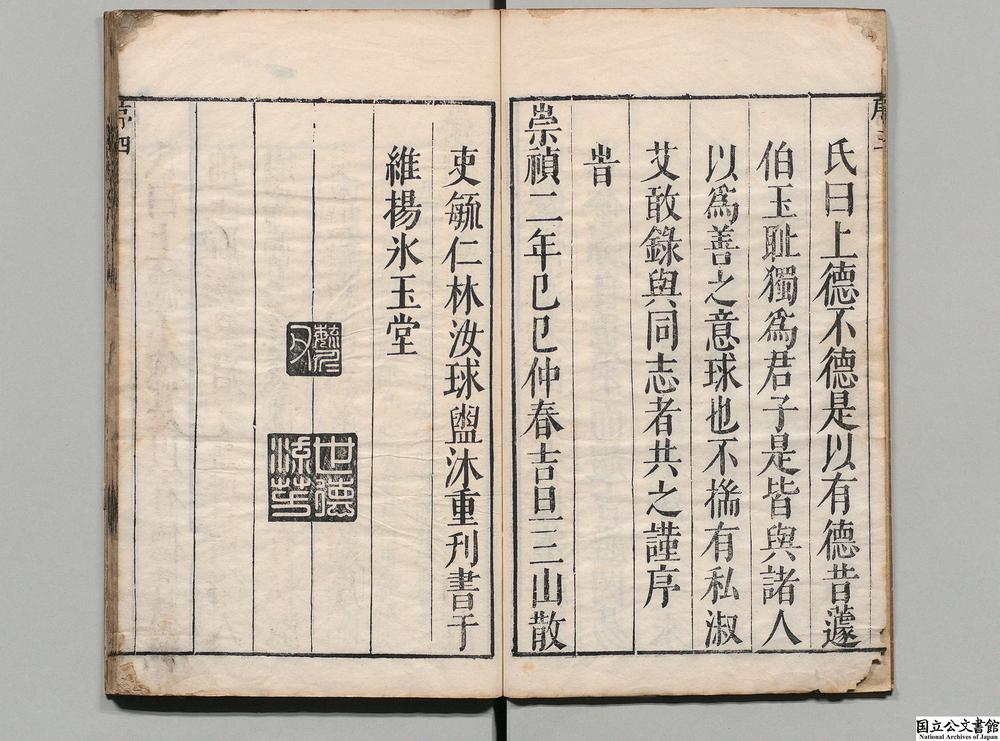 序三
氏曰上德不德是以有德昔蘧
伯玉耻獨爲君子是皆與諸人
以爲善之意球也不揣有私淑
艾敢錄與同志者共之謹序
旹
崇禎二年己巳仲春吉旦三山散
吏毓仁林汝球盥沐重刊書于
維揚氷玉堂
世德
序四
国立公文書館
National Archives of Japan